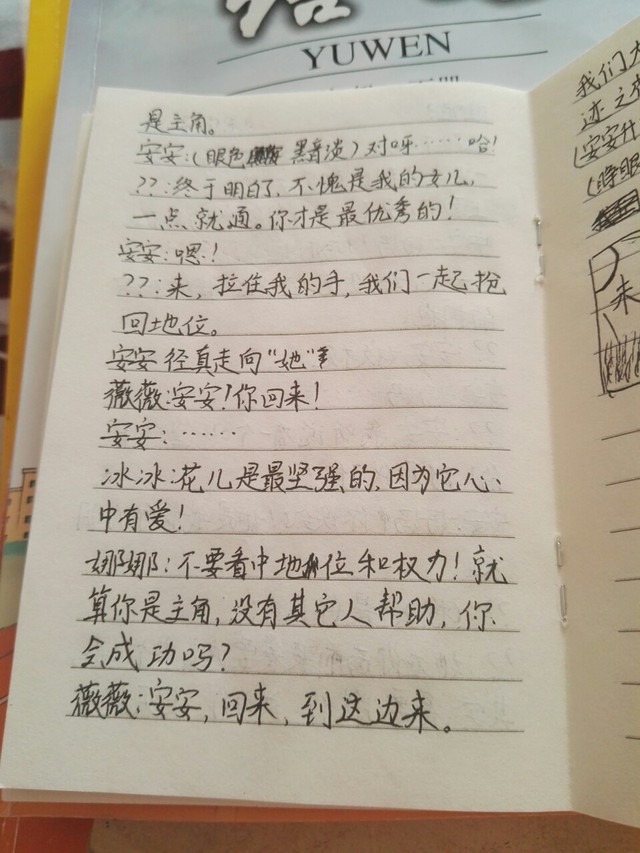 YUWEN
是主角。
安安:(眼色 黑音淡)对呀……哈!
??:终于明白了,不愧是我的女儿,
一点就通。你才是最优秀的!
安安:嗯!
??:来,拉住我的手,我们一起抢
回地位。
安安径真走向"她"
薇薇:安安!你回来!
安安:……
冰冰:花儿是最坚强的,因为它心
中有爱!
娜娜:不要看中地位和权力!就
算你是主角,没有其它人帮助,你
会成功吗?
薇薇:安安,回来,到这边来。
我们
迹之
(安安
(睁眼
来